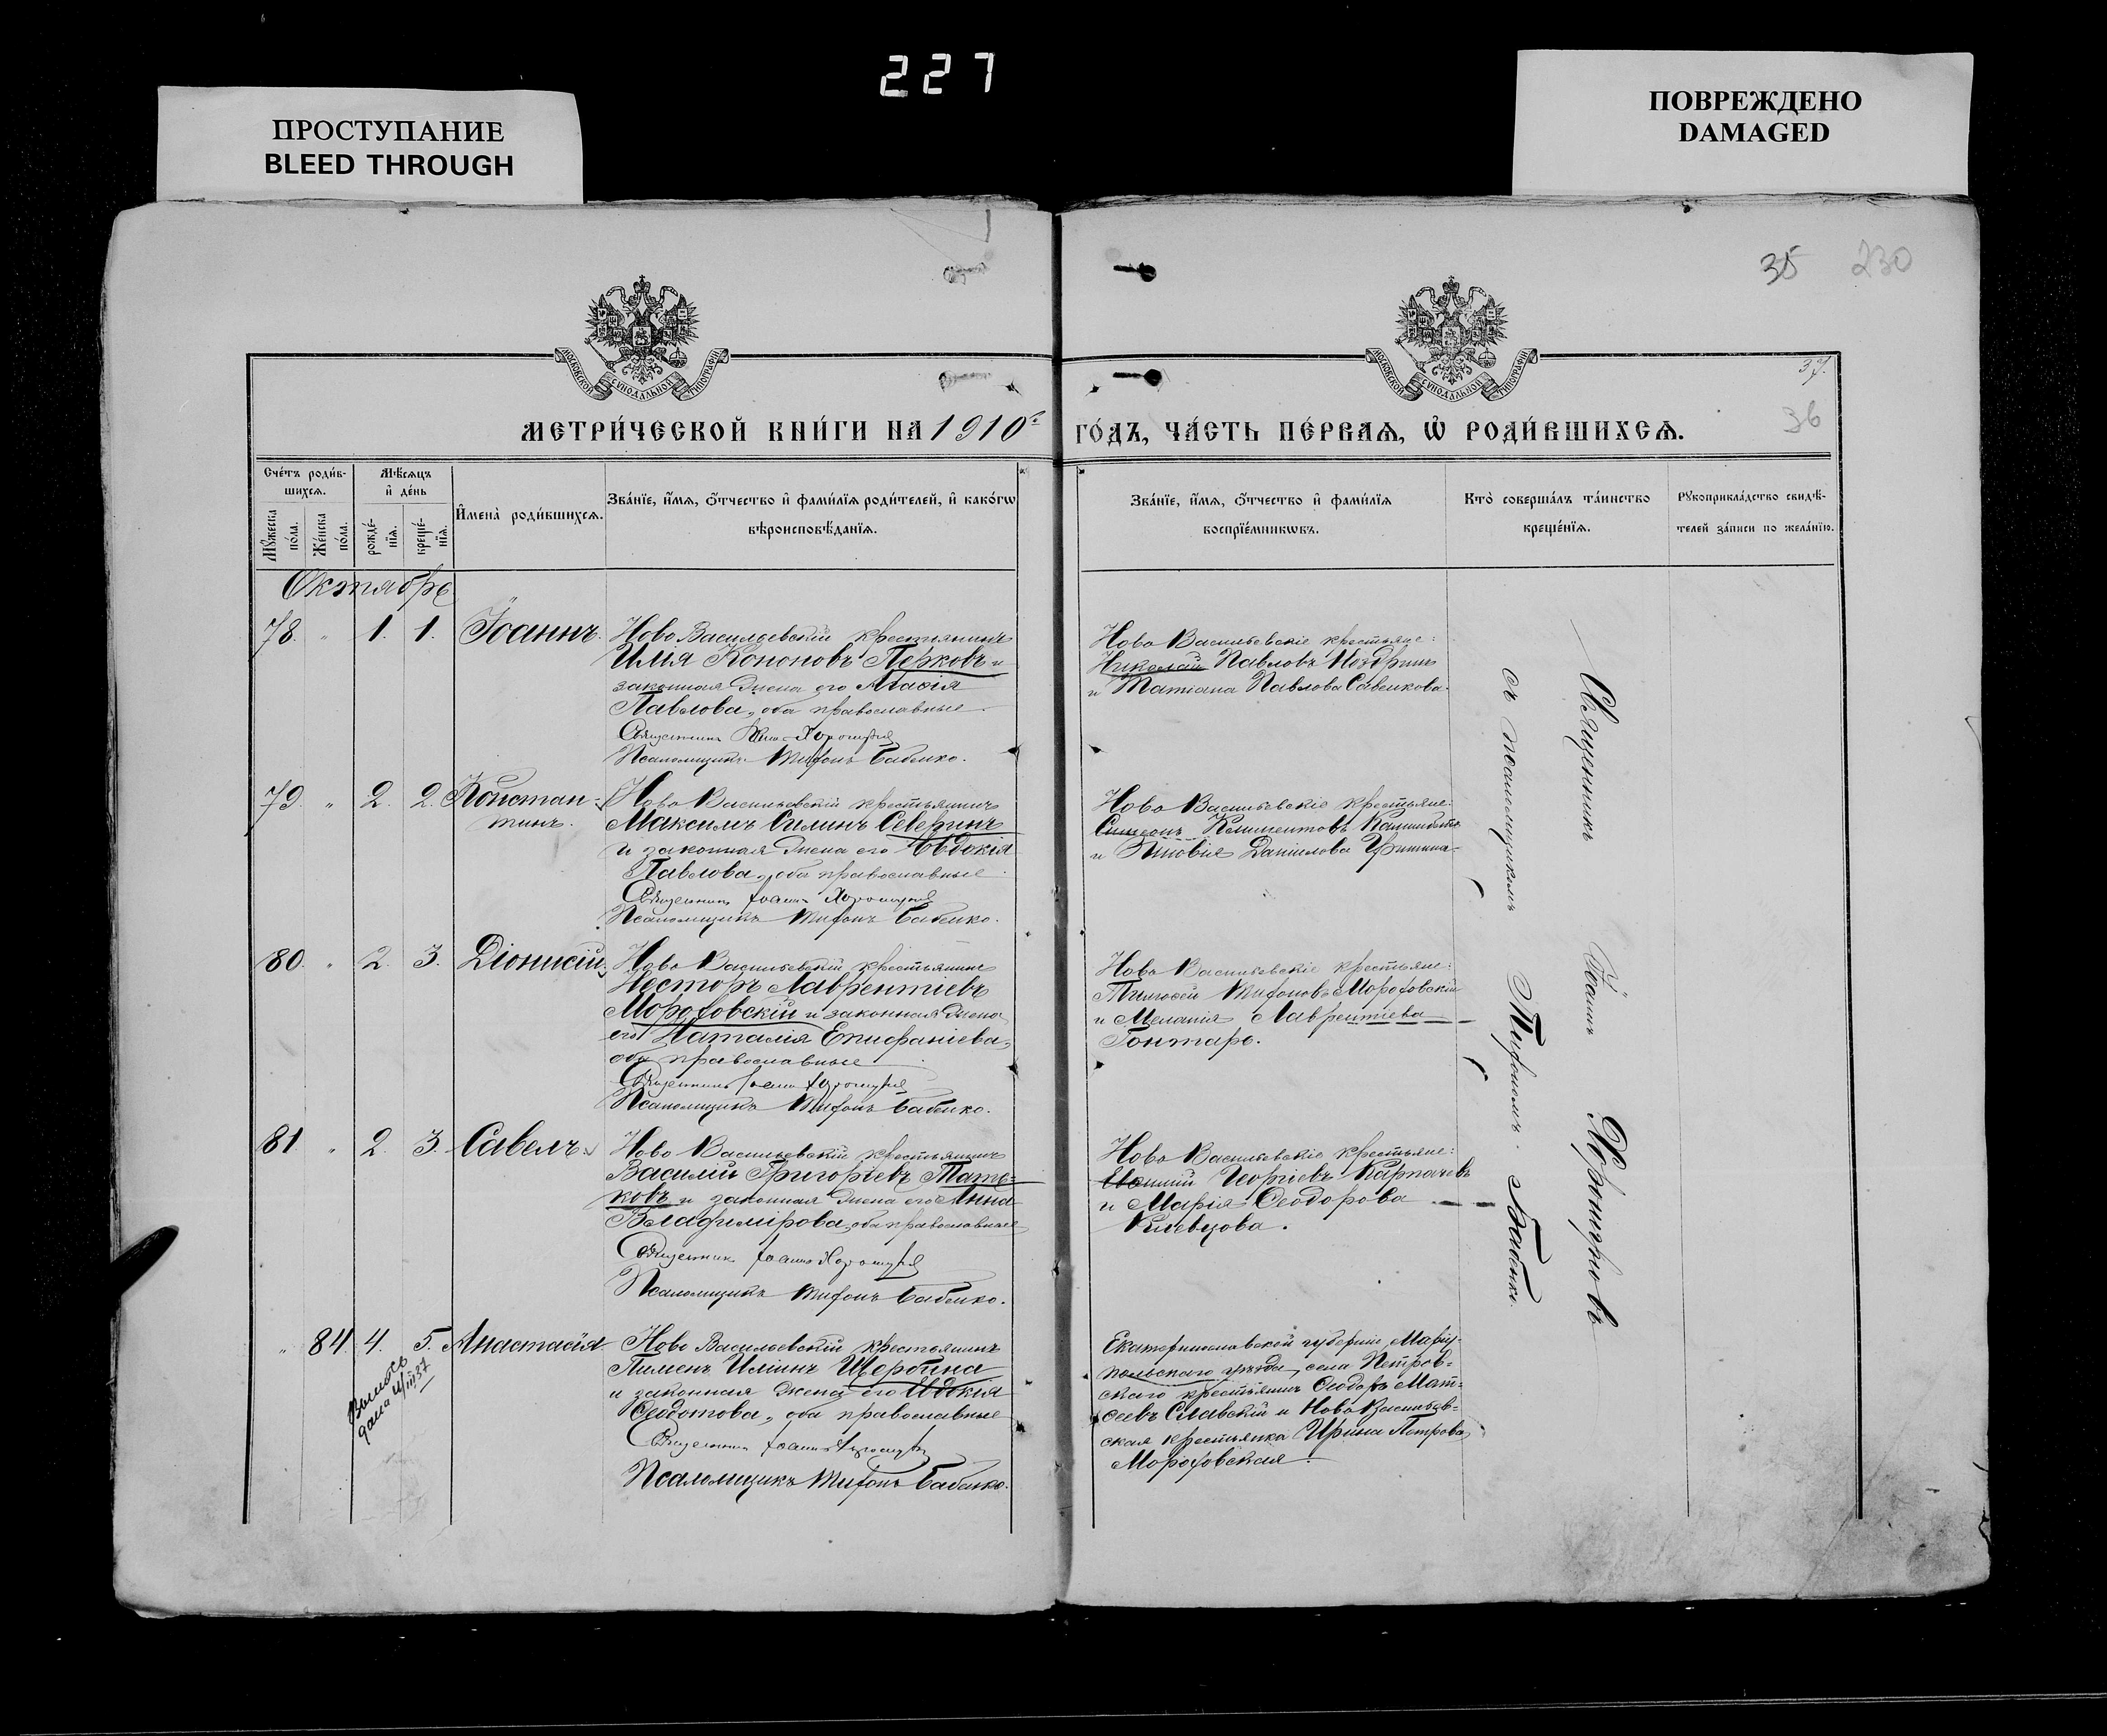 227
ПРОСТУПАНИЕ
BLEED THROUGH
ПОВРЕЖДЕНО
DAMAGED
35 230
МОСКОВСКОЙ СѴНОДАЛЬНОЙ ТИПОГРАФІИ
МОСКОВСКОЙ СѴНОДАЛЬНОЙ ТИПОГРАФІИ
37.
36
МЕТРИ́ЧЕСКОЙ КНИ́ГИ НА 1910 ГО́ДЪ, ЧА́СТЬ ПЕ́РВАѦ, Ѡ҆ РОДИ́ВШИХСѦ.
Сче́тъ роди́в-
шихсѧ.
Мѣ́сѧцъ
и҆ де́нь
Мꙋ́жеска
по́ла.
Же́нска
по́ла.
рожде́-
нїѧ.
креще́-
нїѧ.
И҆мена̀ роди́вшихсѧ.
Зва́нїе, и҆́мѧ, ѻ҆́тчество и҆ фами́лїѧ роди́телей, и҆ како́гѡ
вѣроисповѣ́данїѧ.
Зва́нїе, и҆́мѧ, ѻ҆́тчество и҆ фами́лїѧ
воспрїе́мникѡвъ.
Кто̀ соверша́лъ та́инство
креще́нїѧ.
Рꙋкоприкла́дство свидѣ́-
телей за́писи по жела́нїю.
Октябрь
78. „ 1. 1. Іоаннъ.
Ново Васильевскій крестьянинъ
Илія Кононовъ Перковъ и
законная жена его Агафія
Павлова, оба православные.
Священникъ Іоаннъ
Псаломщикъ Тифонъ Бабенко.
Ново Васильевскіе крестьяне:
Николай Павловъ Ноздринъ
и Татіана Павлова Савенкова.
79. „ 2. 2. Констан-
тинъ.
Ново Васильевскій крестьянинъ
Максимъ Силинъ Северинъ
и законная жена его Евдокія
Павлова, оба православные.
Священникъ Іоаннъ
Псаломщикъ Тифонъ Бабенко.
Ново Васильевскіе крестьяне:
Симеонъ Климентовъ
и Зиновія Даніилова
80. „ 2. 3. Діонисій.
Ново Васильевскій крестьянинъ
Несторъ Лаврентіевъ
Морозовскій и законная жена
его Наталія Епифаніева,
оба православные
Священникъ Іоаннъ
Псаломщикъ Тифонъ Бабенко.
Ново Васильевскіе крестьяне:
Тимофей Тифоновъ Морозовскій
и Меланія Лаврентіева
Гонтарь.
81. „ 2. 3. Савелъ.
Ново Васильевскій крестьянинъ
Василій Григоріевъ Тать-
ковъ и законная жена его Анна
Владимірова, оба православные
Священникъ Іоаннъ
Псаломщикъ Тифонъ Бабенко.
Ново Васильевскіе крестьяне:
Георгіевъ Карпачевъ
и Марія Ѳеодорова
Клевцова.
„ 84 4. 5. Анастасія
Выпись
дана 4/III 37
Ново Васильевскій крестьянинъ
Пименъ Иліинъ Щербина
и законная жена его Евдокія
Ѳедотова, оба православные
Священникъ Іоаннъ
Псаломщикъ Тифонъ Бабенко.
Екатеринославской губерніи Маріу-
польскаго уѣзда, села Петров-
скаго крестьянинъ Ѳеодоръ Мат-
ѳеевъ Славскій и Ново Васильев-
ская крестьянка Ирина Петрова
Морозовская.
Священникъ Іоаннъ
съ псаломщикомъ Тифономъ Бабенко.